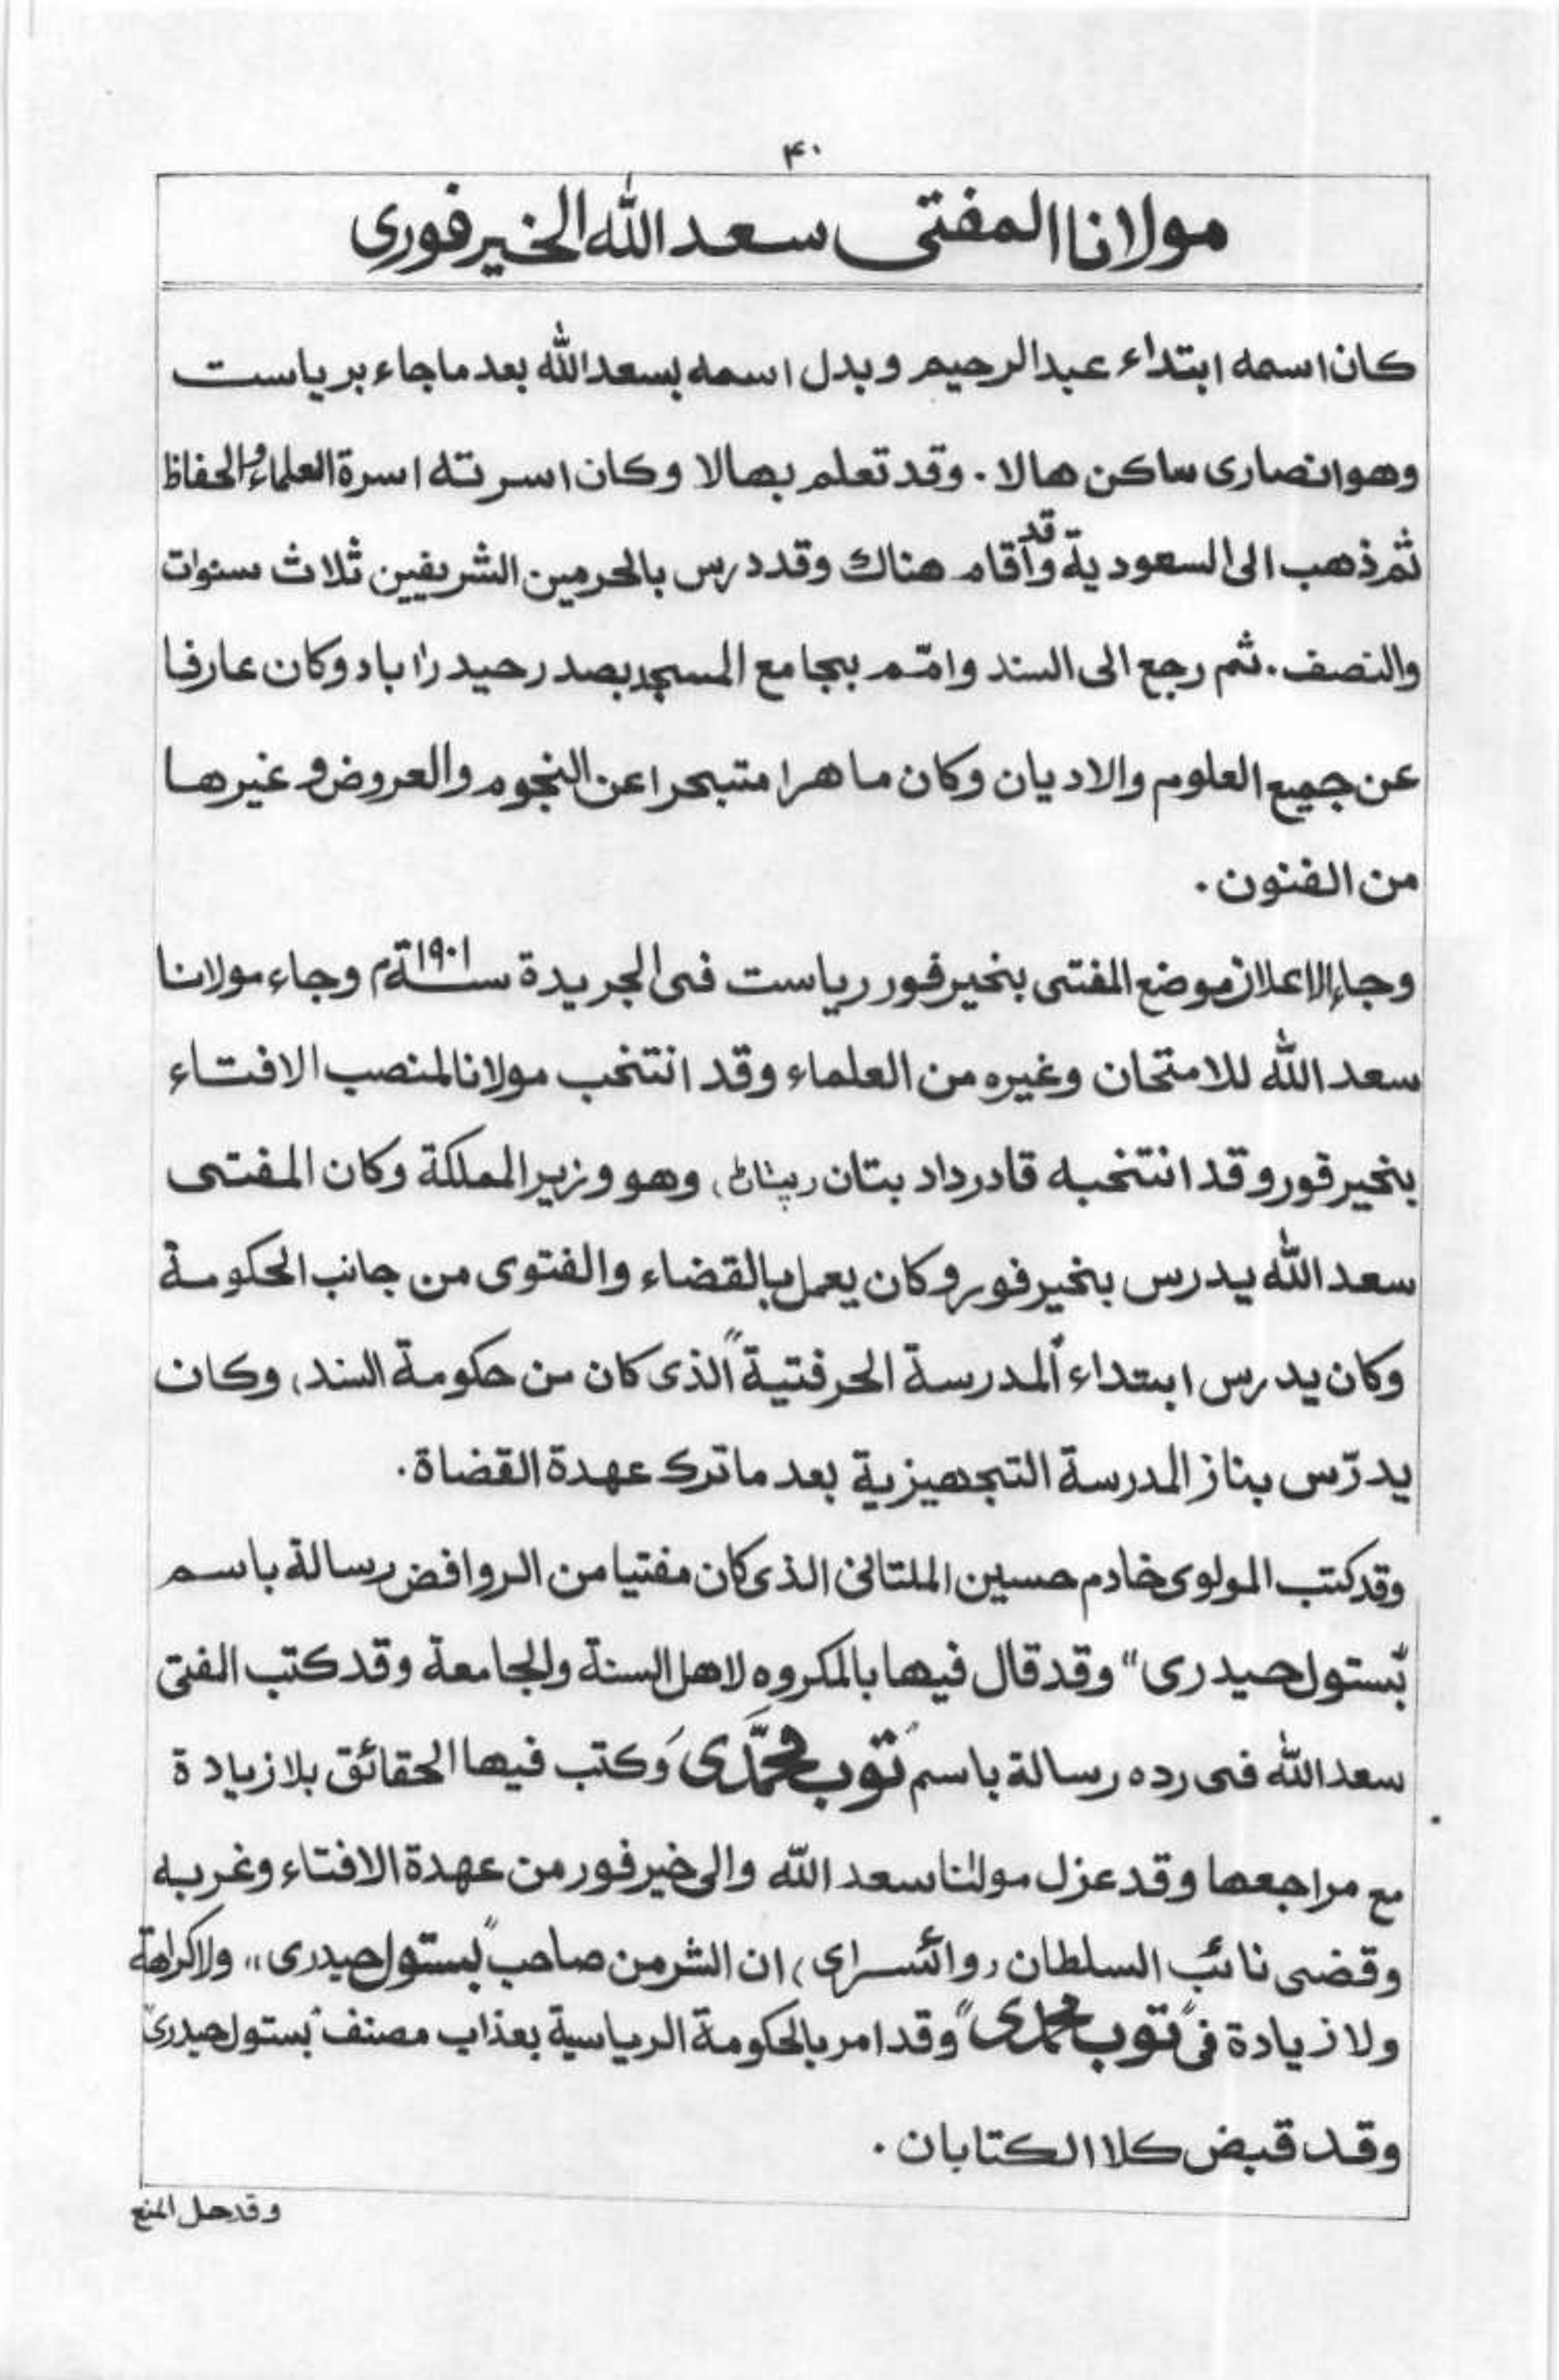 ۴۰
مولانا المفتی سعد الله الخیرفوری
کان اسمه ابتداء عبدالرحیم وبدل اسمه بسعدالله بعد ماجاء بریاست
وهو انصاری ساکن هالا . وقد تعلم بهالا وکان اسرته اسرة العلماء والحفاظ
ثم ذهب الی السعودیة وقد أقام هناك وقد درس بالحرمین الشریفین ثلاث سنوات
والنصف . ثم رجع الی السند وامّم بجامع المسجد بصدر حیدرا باد وکان عارفا
عن جمیع العلوم والادیان وکان ماهرا متبحرا عن النجوم والعروض و غیرها
من الفنون .
وجاء الاعلان موضع المفتی بخیرفور ریاست فی الجریدة سنة ۱۹۰۱م وجاء مولانا
سعد الله للامتحان وغیره من العلماء وقد انتخب مولانا لمنصب الافتاء
بخیرفور وقد انتخبه قادرداد بتان (پٹھان) وهو وزیر المملکة وکان المفتی
سعد الله یدرس بخیرفور وکان یعمل بالقضاء والفتوی من جانب الحکومة
وکان یدرس ابتداء "المدرسة الحرفتیة" الذی کان من حکومة السند، وکان
یدرّس بناز المدرسة التجهیزیة بعد ماترك عهدة القضاة .
وقد کتب المولوی خادم حسین الملتانی الذی کان مفتیا من الروافض رسالة باسم
"بستول حیدری" وقد قال فیها بالمکروه لاهل السنة والجامعة وقد کتب المفتی
سعد الله فی رده رسالة باسم "توب محمّدی" وکتب فیها الحقائق بلا زیادة
مع مراجعها وقد عزل مولٰنا سعد الله والی خیرفور من عهدة الافتاء وغربه
وقضی نائب السلطان (وائسرای) ان الشر من صاحب "بستول حیدری" ولا کراهة
ولا زیادة فی "توب محمدی" وقد امر بالحکومة الریاسیة بعذاب مصنف "بستول حیدری"
وقد قبض کلا الکتابان .
وقد حل المنع